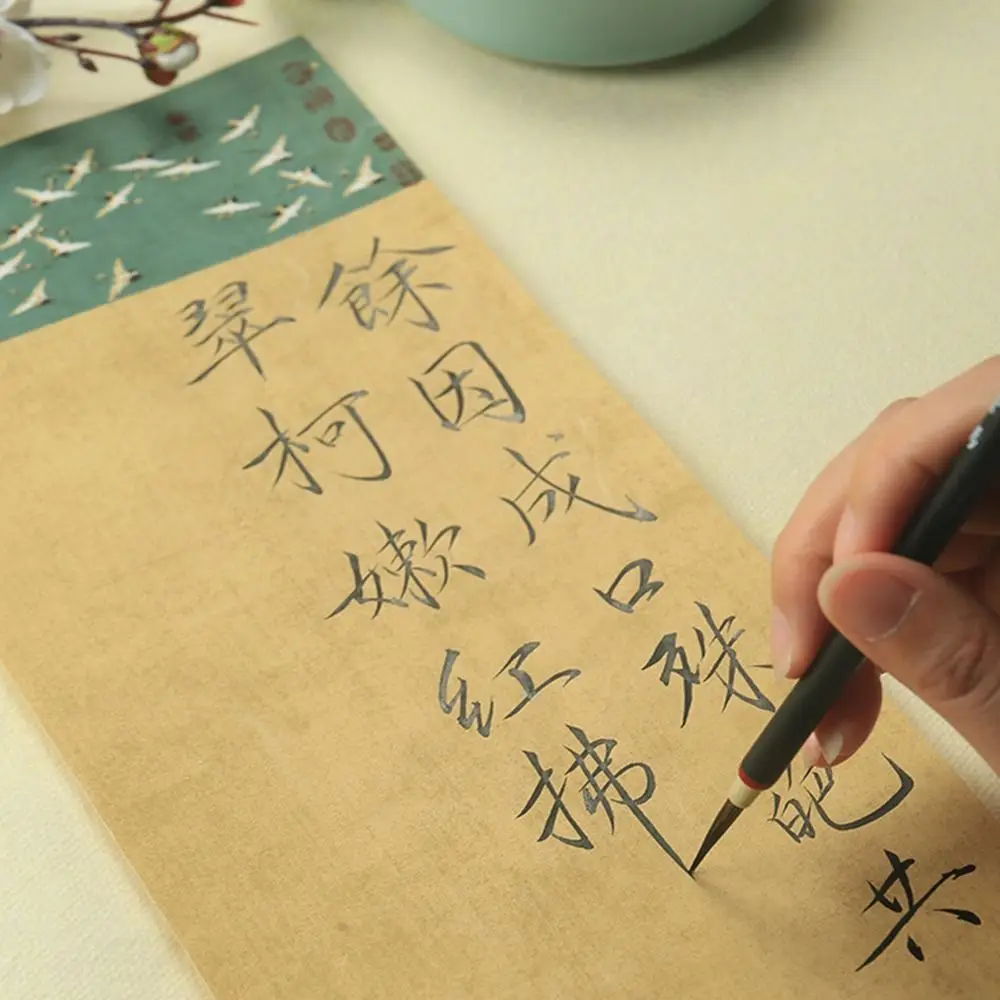 餘因成口殊皅共
翠柯嫩紅拂